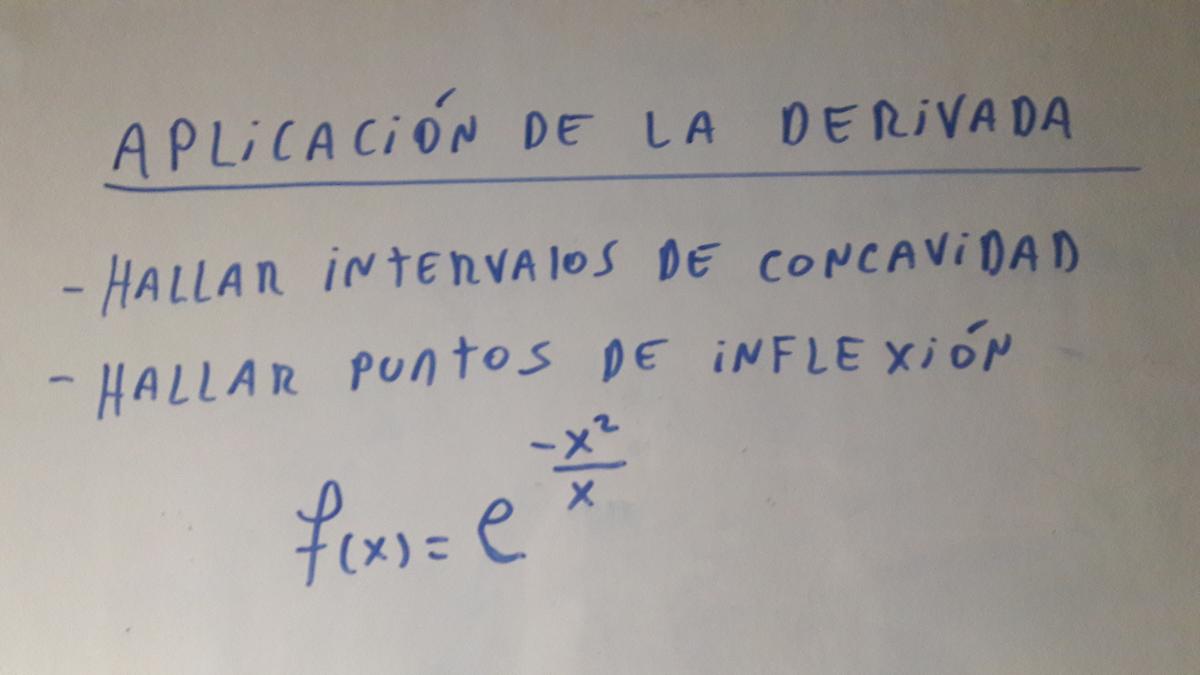 APLiCACiÓN DE LA DERiVADA
- HALLAR iNtERVAlOS DE CONCAViDAD
- HALLAR PUNtOS DE iNFLEXiÓN
f(x) = e^(-x²/x)